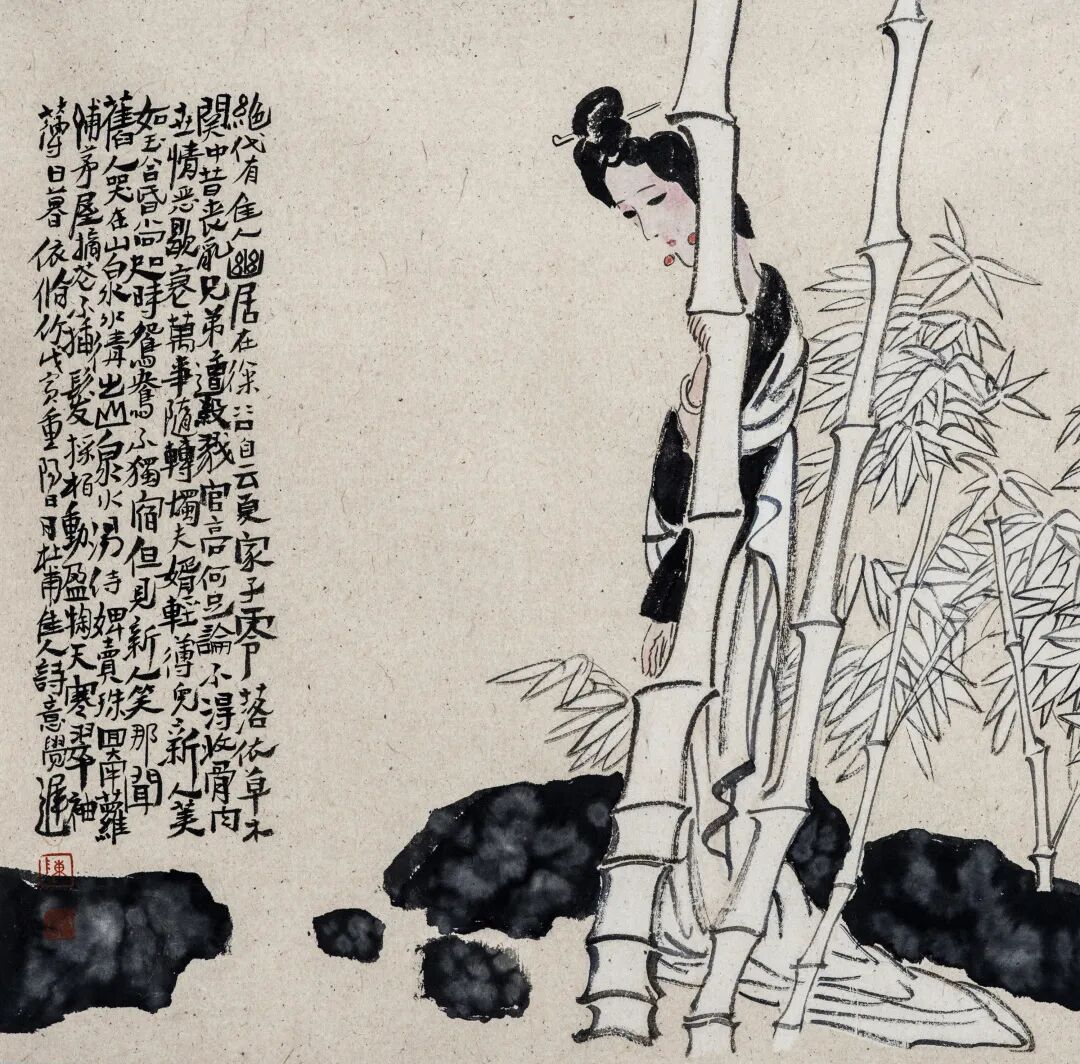 絕代有佳人幽居在深谷自云良家子零落依草木
関中昔喪亂兄弟遭殺戮官高何足論不得收骨肉
世情惡歇衰萬事隨轉燭夫婿輕薄兒新人美
如玉合昏尚知時鴛鴦不獨宿但見新人笑那聞
舊人哭在山泉水清出山泉水濁侍婢賣珠回牽蘿
補茅屋摘花不插髮採柏動盈掬天寒翠袖
薄日暮依脩竹戊寅重陽日用杜甫佳人詩意覺遲
陳